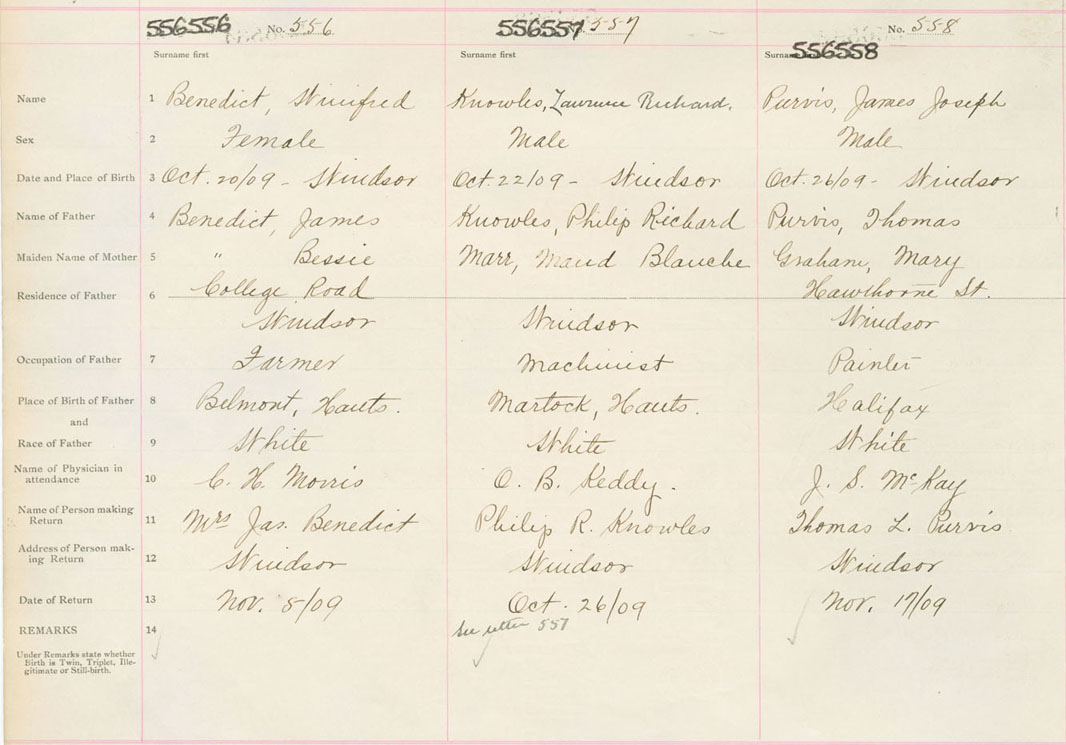 556556 No. 556 556557 557 No. 558
Surname first Surname first Surname first 556558
Name 1 Benedict, Winifred Knowles, Lawrence Richard. Purvis, James Joseph
Sex 2 Female Male Male
Date and Place of Birth 3 Oct. 20/09 - Windsor Oct. 22/09 - Windsor Oct. 26/09 - Windsor
Name of Father 4 Benedict, James Knowles, Philip Richard Purvis, Thomas
Maiden Name of Mother 5 " Bessie Marr, Maud Blanche Graham, Mary
Residence of Father 6 College Road Hawthorne St.
Windsor Windsor Windsor
Occupation of Father 7 Farmer Machinist Painter
Place of Birth of Father 8 Belmont, Hants. Martock, Hants. Halifax
and
Race of Father 9 White White White
Name of Physician in
attendance 10 C. H. Morris O. B. Keddy. J. S. McKay
Name of Person making
Return 11 Mrs Jas. Benedict Philip R. Knowles Thomas L. Purvis
Address of Person mak-
ing Return 12 Windsor Windsor Windsor
Date of Return 13 Nov. 5/09 Oct. 26/09 Nov. 17/09
REMARKS 14 See letter 557
Under Remarks state whether
Birth is Twin, Triplet, Ille-
gitimate or Still-birth.